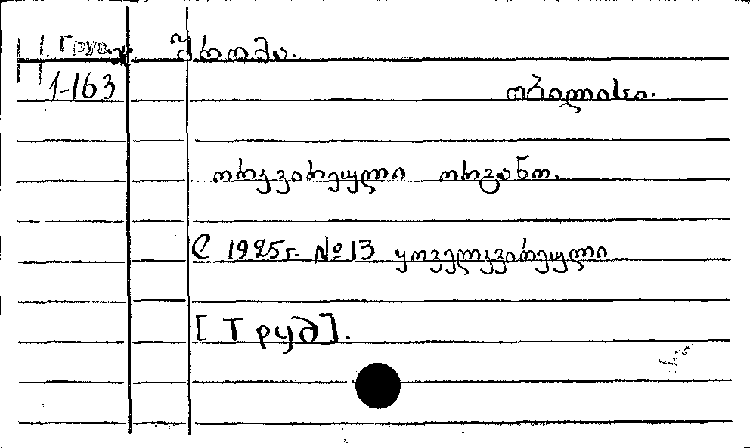 Н Груз. შრომა.
1-163
თბილისი.
ორკვირეული ორგანო.
С 1925г. №13 ყოველკვირეული
[Труд].